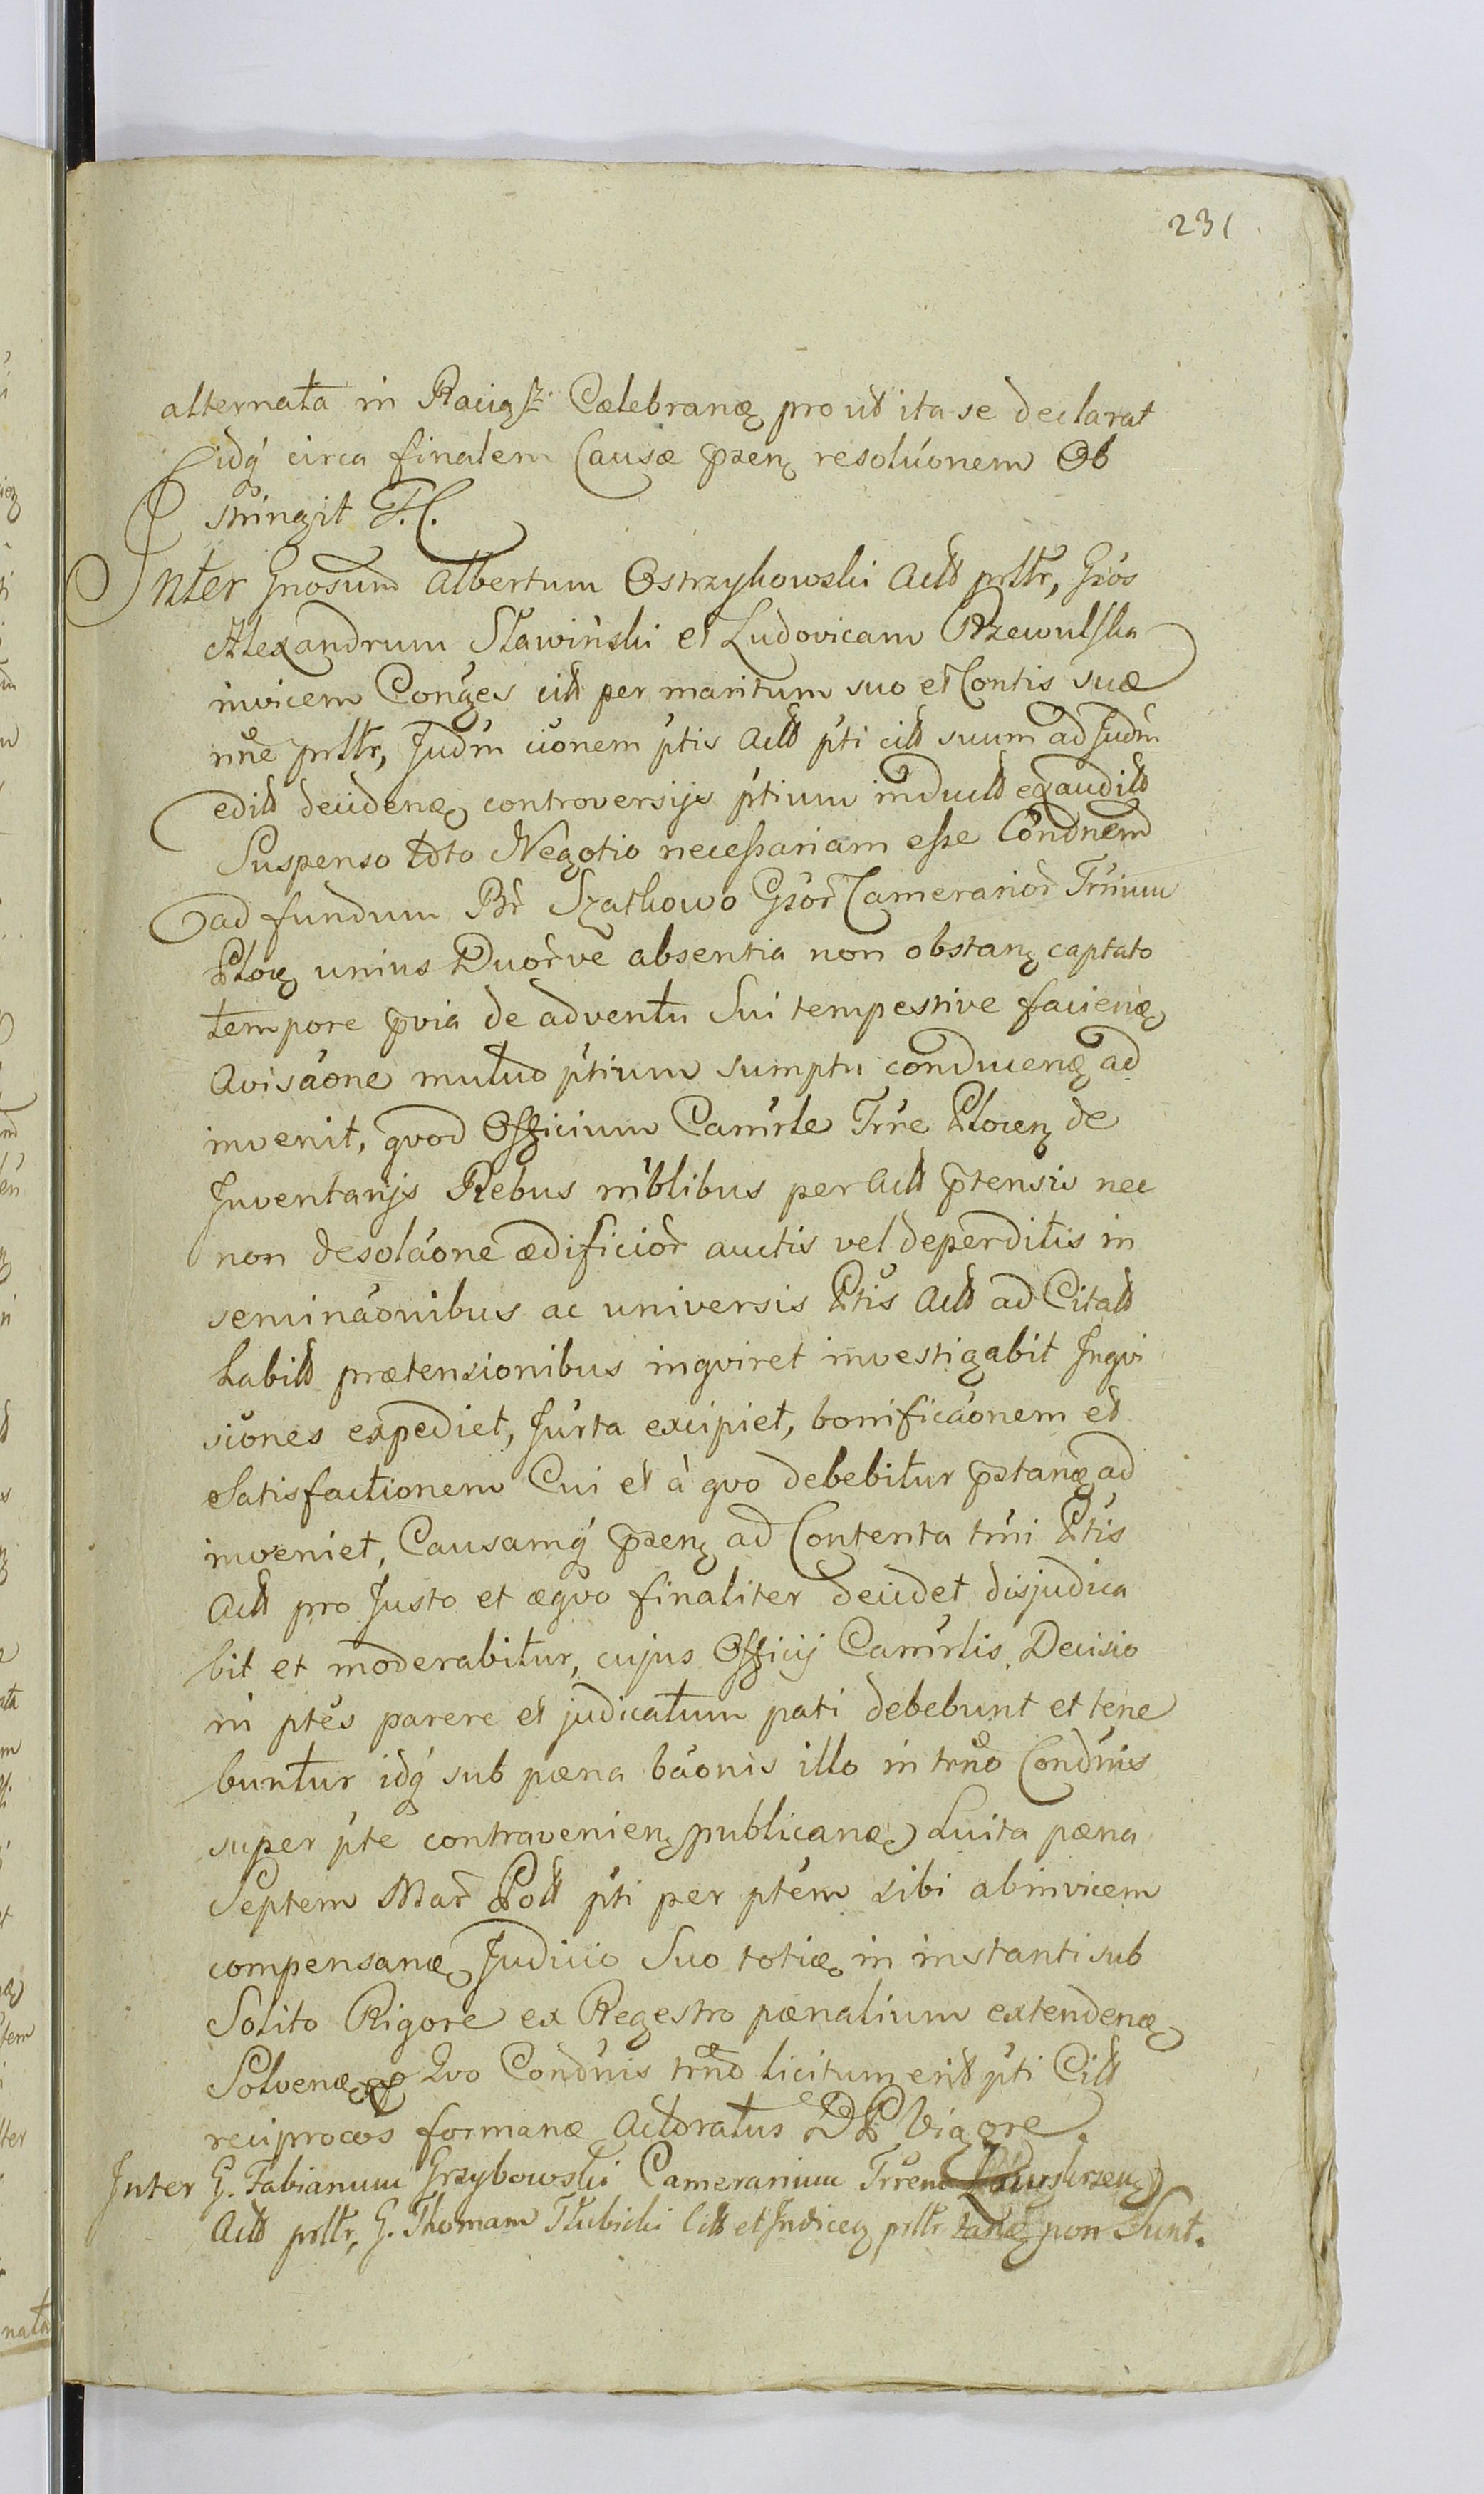 231
alternata in Raciąz Cælebranæ prout ita se declarat
idq́ circa finalem Causæ pręsenę resolúonem Ob
stringit T.C.
Inter Gnosum Albertum Ostrzykowski Actt prlttr, Gsos
Alexandrum Sławiński et Ludovicam Rzewulska
invicem Conges citt per maritum suo et Contis suæ
nñe prlttr, Judm cionem ptis Actt pti citt suum ad Judm
editt decidenæ controversijs ptium inductt exauditt
Suspenso toto Negotio necessariam esse Condnem
ad fundum Br Szatkowo Gsor Camerarior Trrium
Plocę unius Duorve absentia non obstanę captato
tempore prvia de adventu Sui tempestive facienæ
Avisaone mutuo ptium sumptu conducenæ ad
invenit, qvod Officium Camrle Trre Plocenę de
Inventarijs Rebus mblibus per Actt prtensis nec
non desolaone ædificior auctis vel deperditis in
seminaonibus ac universis Ptis Actt ad Citatt
habitt prætensionibus inqviret investigabit Inqvi
siones expediet, Jurta excipiet, bonificaonem et
Satisfactionem Cui et à qvo debebitur prstanæ ad
inveniet, Causamq́ prsenę ad Contenta trni Ptis
Actt pro Justo et æqvo finaliter decidet disjudica
bit et moderabitur, cujus Officij Camrlis Decisio
ni ptes parere et judicatum pati debebunt et tene
buntur idq́ sub pæna baonis illo in trno Condnis
super pte contravenienę publicanæ Luita pæna
Septem Mar Poll pti per ptem sibi abinvicem
compensanæ Judicio Suo toties in instanti sub
Solito Rigore ex Regestro pænalium extendenæ
Solvenæ Qvo Condnis trno licitum erit pti Citt
reciprocos formanæ Actoratus DP Vigore.
Inter G. Fabianum Grzybowski Camerarium Trrenę
Actt prlttr, G. Thomam Tłubicki Citt et Judicenę prlttr non Sunt.